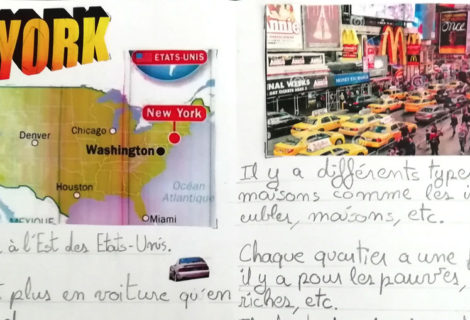 YORK
ETATS-UNIS
New York
Chicago
Denver
Washington
Houston
Océan
Atlantique
Miami
MEXIQUE
à l'Est des Etats-Unis.
plus en voiture qu'en
Annie
Annie
McDonald's
once
Il y a différents types
maisons comme les
eubles, maisons, etc.
Chaque quartier a une
il y a pour les pauvres,
riches, etc.